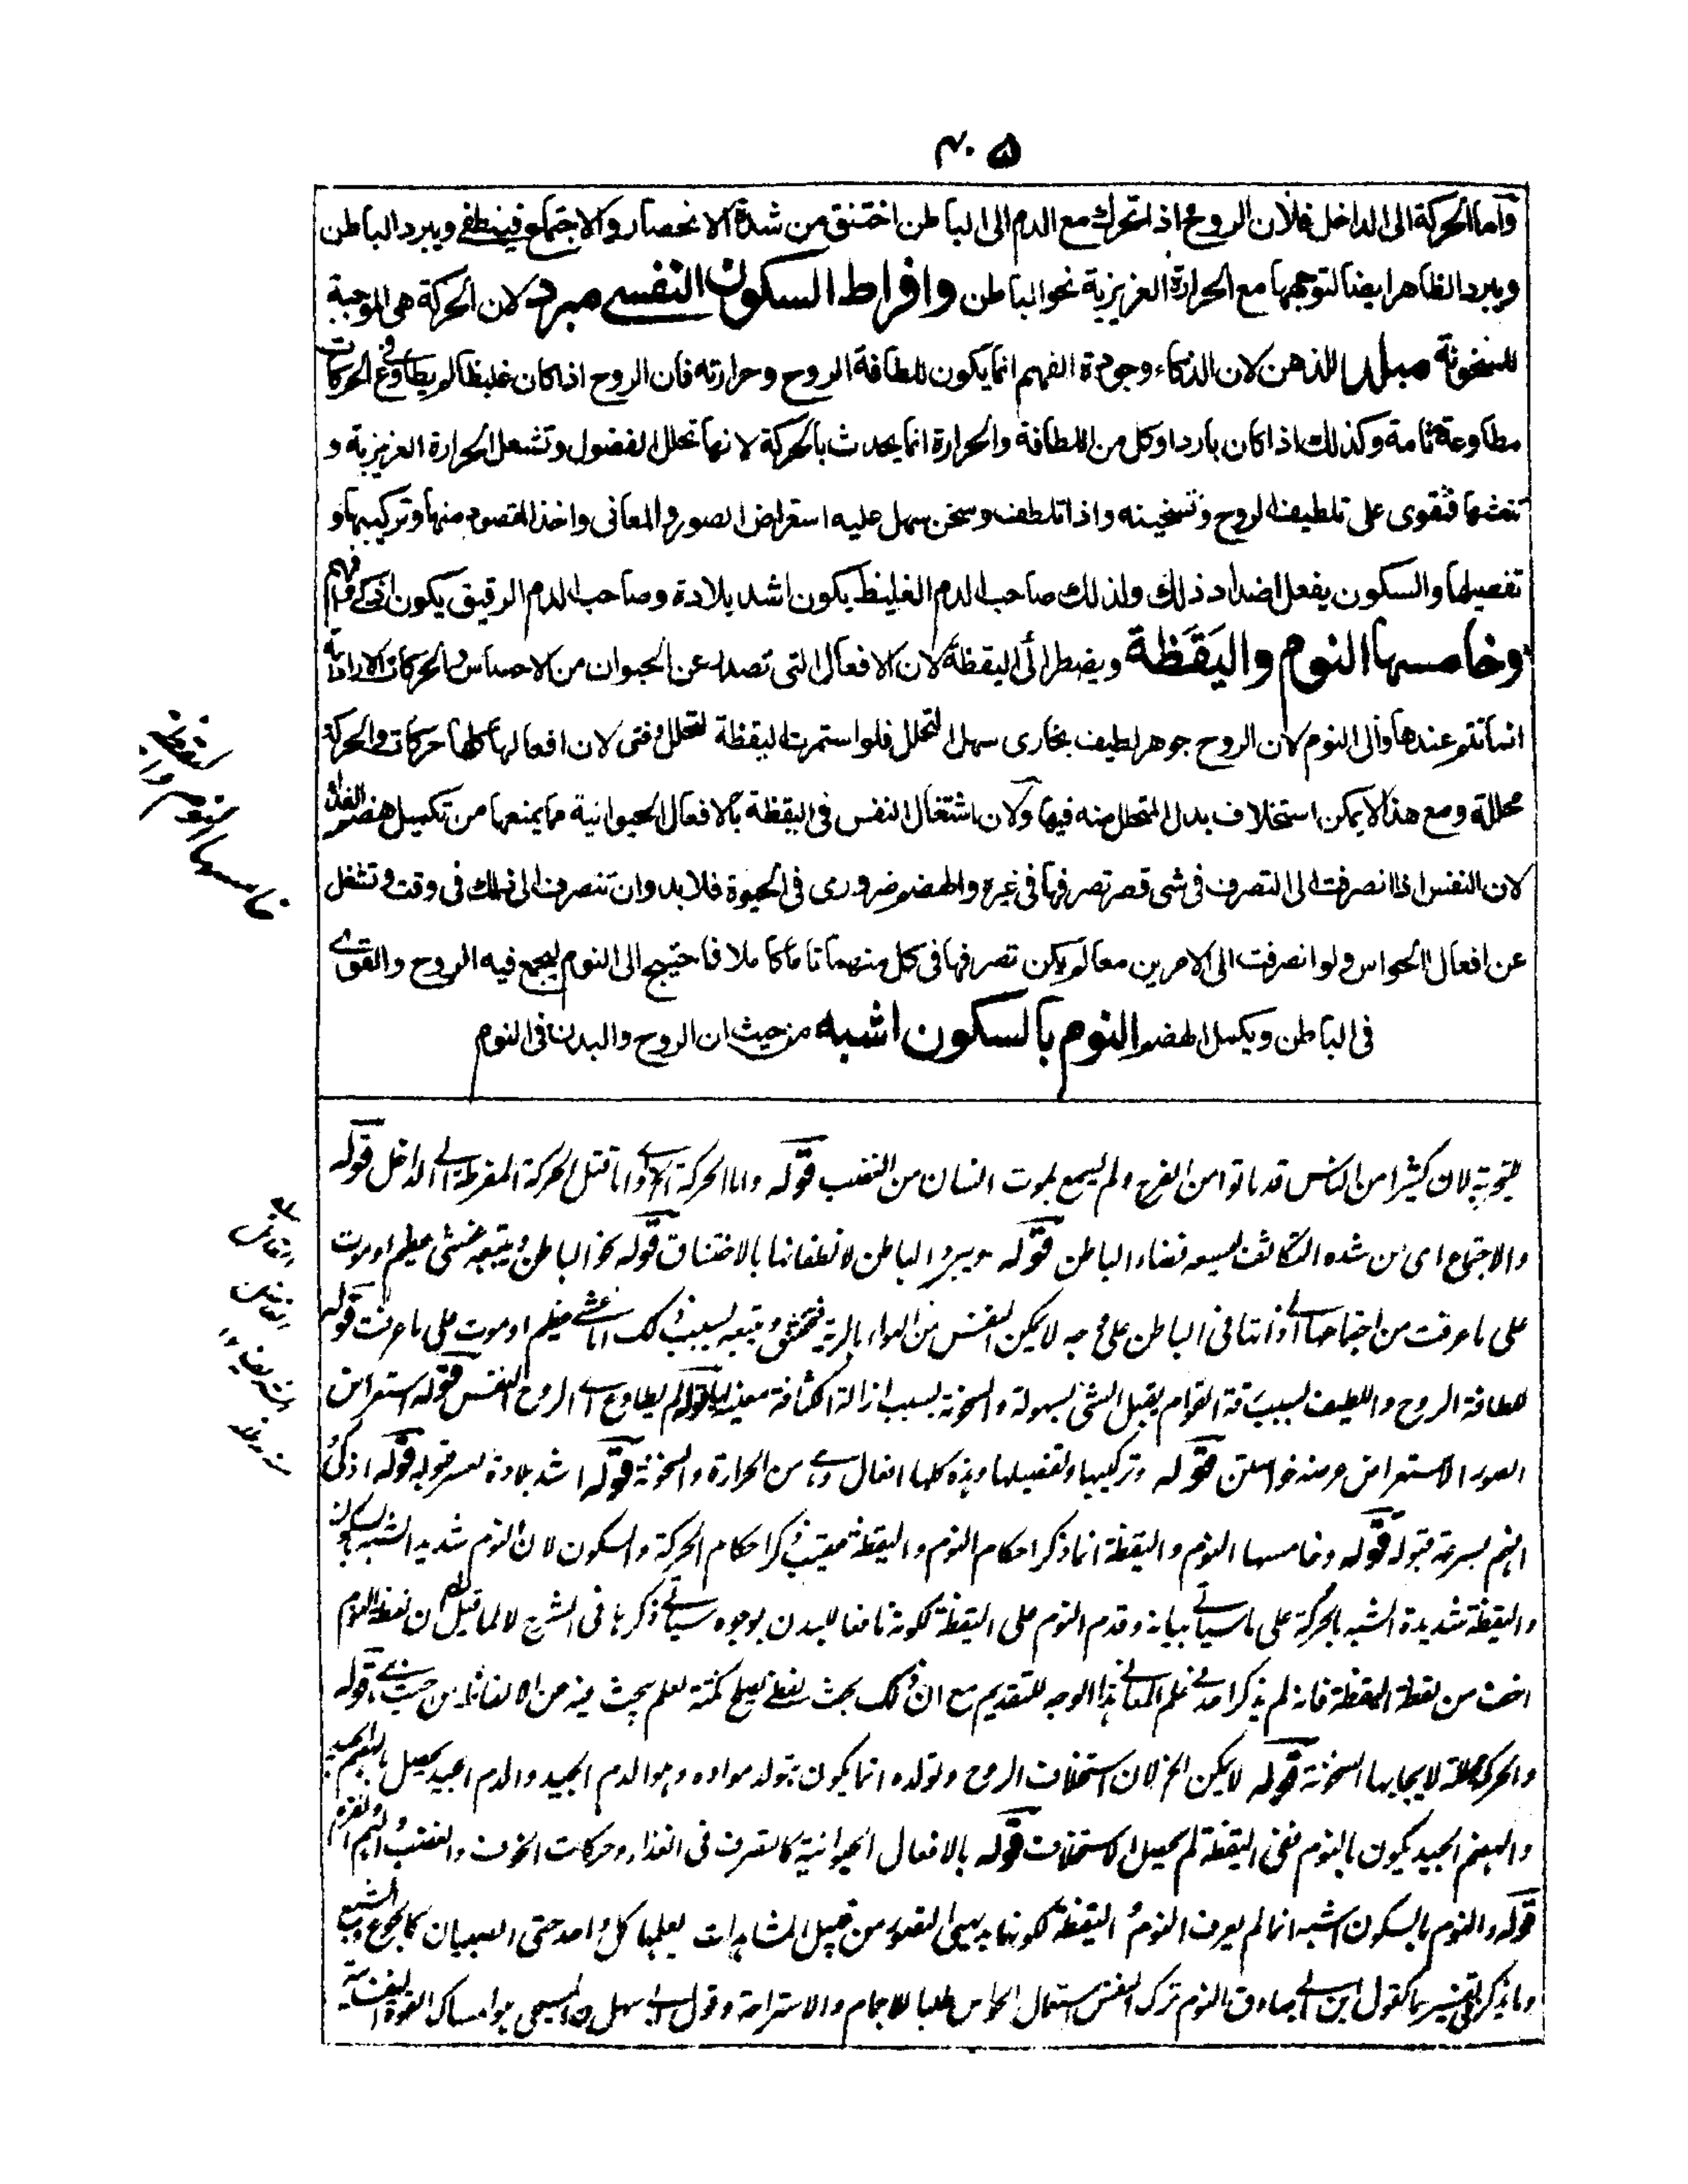 ٤٠٥
واما الحركة الى الداخل فلان الروح اذا تحرك مع الدم الى الباطن اختنق من شدة الانحصار والاجتماع فينطفى ويبرد الباطن
ويبرد الظاهر ايضا لتوجهها مع الحرارة الغريزية نحو الباطن وافراط السكون النفسى مبرد لان الحركة هى الموجبة
للسخونة مبلد للذهن لان الذكاء وجودة الفهم انما يكون للطافة الروح وحرارته فان الروح اذا كان غليظا لم يطاوع فى الحركات
مطاوعة تامة وكذلك اذا كان باردا وكل من اللطافة والحرارة انما يحدث بالحركة لانها تحلل الفضول وتشعل الحرارة الغريزية و
تنعشها فتقوى على تلطيف الروح وتسخينه واذا تلطف وسخن سهل عليه استعراض الصور والمعانى واخذ المقصود منها وتركيبها و
تفصيلها والسكون يفعل اضداد ذلك ولذلك صاحب الدم الغليظ يكون اشد بلادة وصاحب الدم الرقيق يكون اذكى فهم
وخامسها النوم واليقظة ويضطر الى اليقظة لان الافعال التى تصدر عن الحيوان من الاحساس والحركات الارادية
انما تتم عندها والى النوم لان الروح جوهر لطيف بخارى سهل التحلل فلو استمرت اليقظة لتحلل وفنى لان افعالها كلها حركات والحركة
محللة ومع هذا لا يمكن استخلاف بدل المتحلل منه فيها ولان اشتغال النفس فى اليقظة بالافعال الحيوانية مما يمنعها من تكميل هضم الغذاء
لان النفس اذا انصرفت الى التصرف فى شى قصر تصرفها فى غيره والهضم ضرورى فى الحيوة فلا بد وان تنصرف الى ذلك فى وقت وتشغل
عن افعال الحواس ولو انصرفت الى الامرين معا لم يكن تصرفها فى كل منهما تاما كاملا فاحتيج الى النوم ليجمع فيه الروح والقوى
فى الباطن ويكمل الهضم النوم بالسكون اشبه من حيث ان الروح والبدن فى النوم
لان كثيرا من الناس قد ماتوا من الفرح ولم يسمع بموت انسان من الغضب قوله واما الحركة الى اى وانما تقتل الحركة المفرطة الى الداخل قوله
والاجتماع اى من شدة التكاثف لسعة فضاء الباطن قوله ويبرد الباطن لانطفائها بالاختناق قوله نحو الباطن ويتبعه غشى عظيم او موت
على ما عرفت من اجتماعها فى الباطن على وجه لا يمكن النفس من الهواء بالرية فتختنق ويتبعه بسبب ذلك اما غشى عظيم او موت على ما عرفت قوله
للطافة الروح واللطيف بسبب رقة القوام يقبل الشئ بسهولة والسخونة بسبب ازالة الكثافة معينة قوله لم يطاوع اى الروح النفس قوله استعراض
الصور الاستعراض عرضه خواستن قوله وتركيبها وتفصيلها وهذه كلها افعال من الحرارة والسخونة قوله اشد بلادة قوله اذكى
الفهم بسرعة قبوله قوله وخامسها النوم واليقظة انما ذكر احكام النوم واليقظة عقيب ذكر احكام الحركة والسكون لان النوم شديد الشبه بالسكون
واليقظة شديدة الشبه بالحركة على ما سياتى بيانه وقدم النوم على اليقظة لكونه نافعا للبدن بوجوه سياتى ذكرها فى الشرح لا لما قيل ان لفظة النوم
اخف من لفظة اليقظة فانه لم يذكر احد فى علم المعانى هذا الوجه للتقديم مع ان ذلك بحث لفظى يصلح نكتة لعلم يبحث فيه عن الالفاظ من حيث هى قوله
والحركة محللة لايجابها السخونة قوله لا يمكن الخ لان استخلاف الروح وتولده انما يكون بتولد مواده وهو الدم الجيد والدم الجيد يحصل بالهضم الجيد
والهضم الجيد يكون بالنوم ففى اليقظة لم يحصل الاستخلاف قوله بالافعال الحيوانية كالتصرف فى الغذاء وحركات الخوف والغضب
قوله والنوم بالسكون اشبه انما لم يعرف النوم واليقظة لكونهما بديهى التصور من قبيل المشاهدات يعلمها كل واحد حتى الصبيان كالجوع والشبع
وما يذكر فى تفسيرها كقول ابن ابى صادق النوم ترك النفس استعمال الحواس طلبا للاجمام والاستراحة وقول ابى سهل المسيحى هو امساك القوة النفسانية